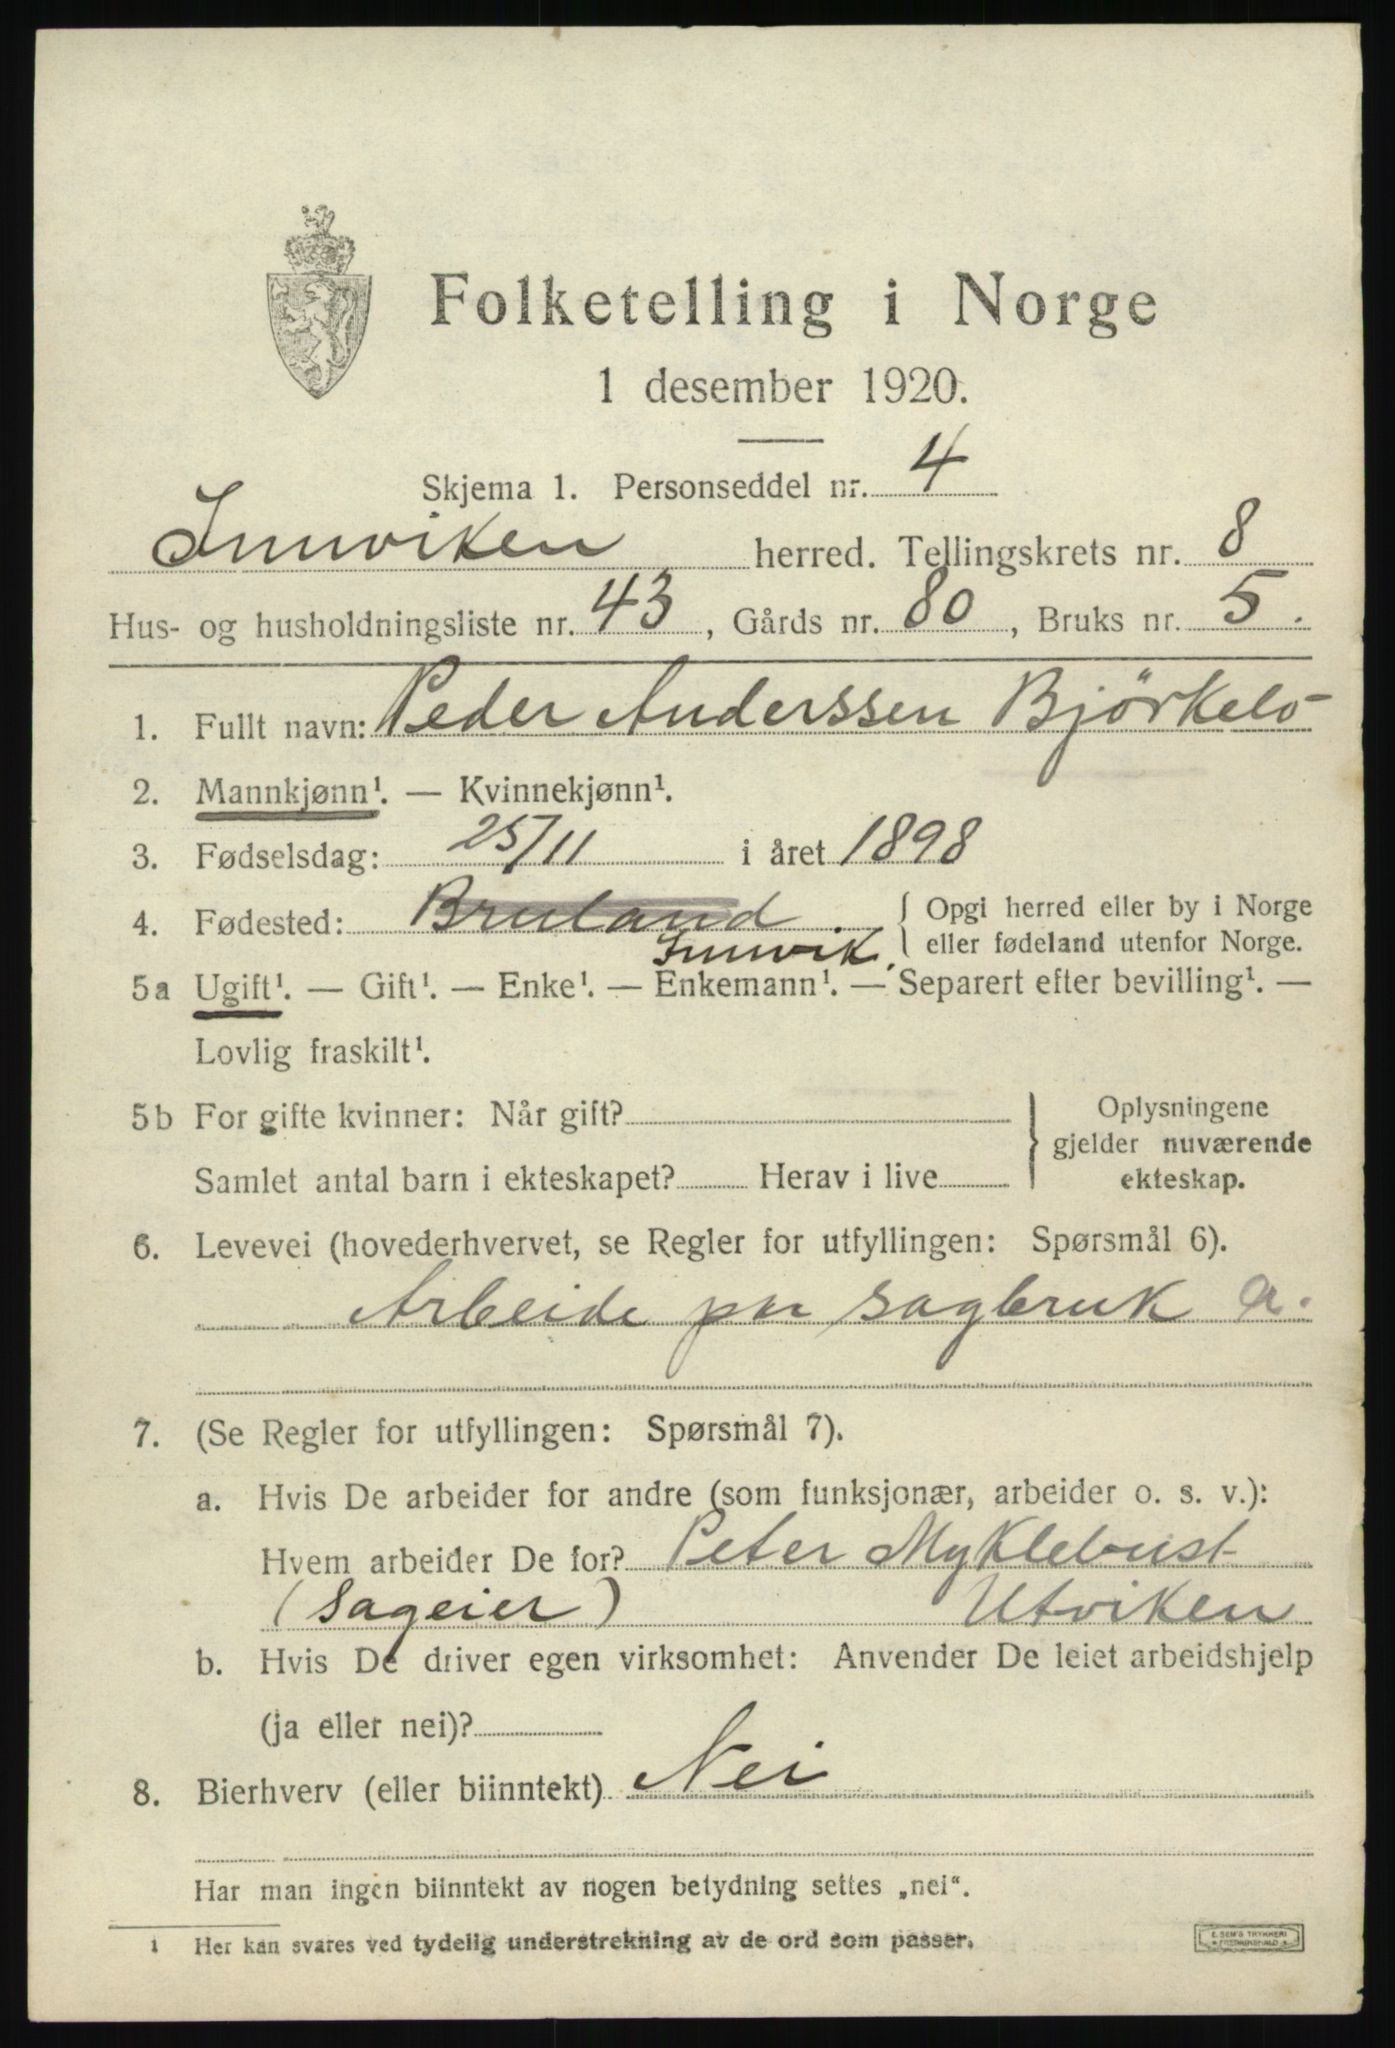 Folketelling i Norge
1 desember 1920.
Skjema 1. Personseddel nr. 4
Innviken herred. Tellingskrets nr. 8
Hus- og husholdningsliste nr. 43, Gårds nr. 80, Bruks nr. 5.
1. Fullt navn: Peder Anderssen Bjørkelo
2. Mannkjønn¹. — Kvinnekjønn¹.
3. Fødselsdag: 25/11 i året 1898
4. Fødested: Bruland { Opgi herred eller by i Norge
Innvik. eller fødeland utenfor Norge.
5a Ugift¹. — Gift¹. — Enke¹. — Enkemann¹. — Separert efter bevilling¹. —
Lovlig fraskilt¹.
5b For gifte kvinner: Når gift? } Oplysningene
gjelder nuværende
Samlet antal barn i ekteskapet? Herav i live ekteskap.
6. Levevei (hovederhvervet, se Regler for utfyllingen: Spørsmål 6).
Arbeide paa sagbruk a.
7. (Se Regler for utfyllingen: Spørsmål 7).
a. Hvis De arbeider for andre (som funksjonær, arbeider o. s. v.):
Hvem arbeider De for? Peter Myklebust
(Sageier) Utviken
b. Hvis De driver egen virksomhet: Anvender De leiet arbeidshjelp
(ja eller nei)?
8. Bierhverv (eller biinntekt) Nei
Har man ingen biinntekt av nogen betydning settes „nei“.
1 Her kan svares ved tydelig understrekning av de ord som passer.
E. SEM'S TRYKKERI
FREDRIKSHALD